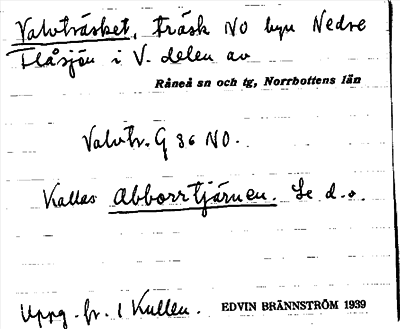 Valvträsket, träsk NO byn Nedre
Flåsjön i V. delen av
Råneå sn och tg, Norrbottens län
Valvtr. G 36 NO.
Kallas Abborrtjärnen. Se d.o.
Uppg. fr. 1 Kullen. EDVIN BRÄNNSTRÖM 1939